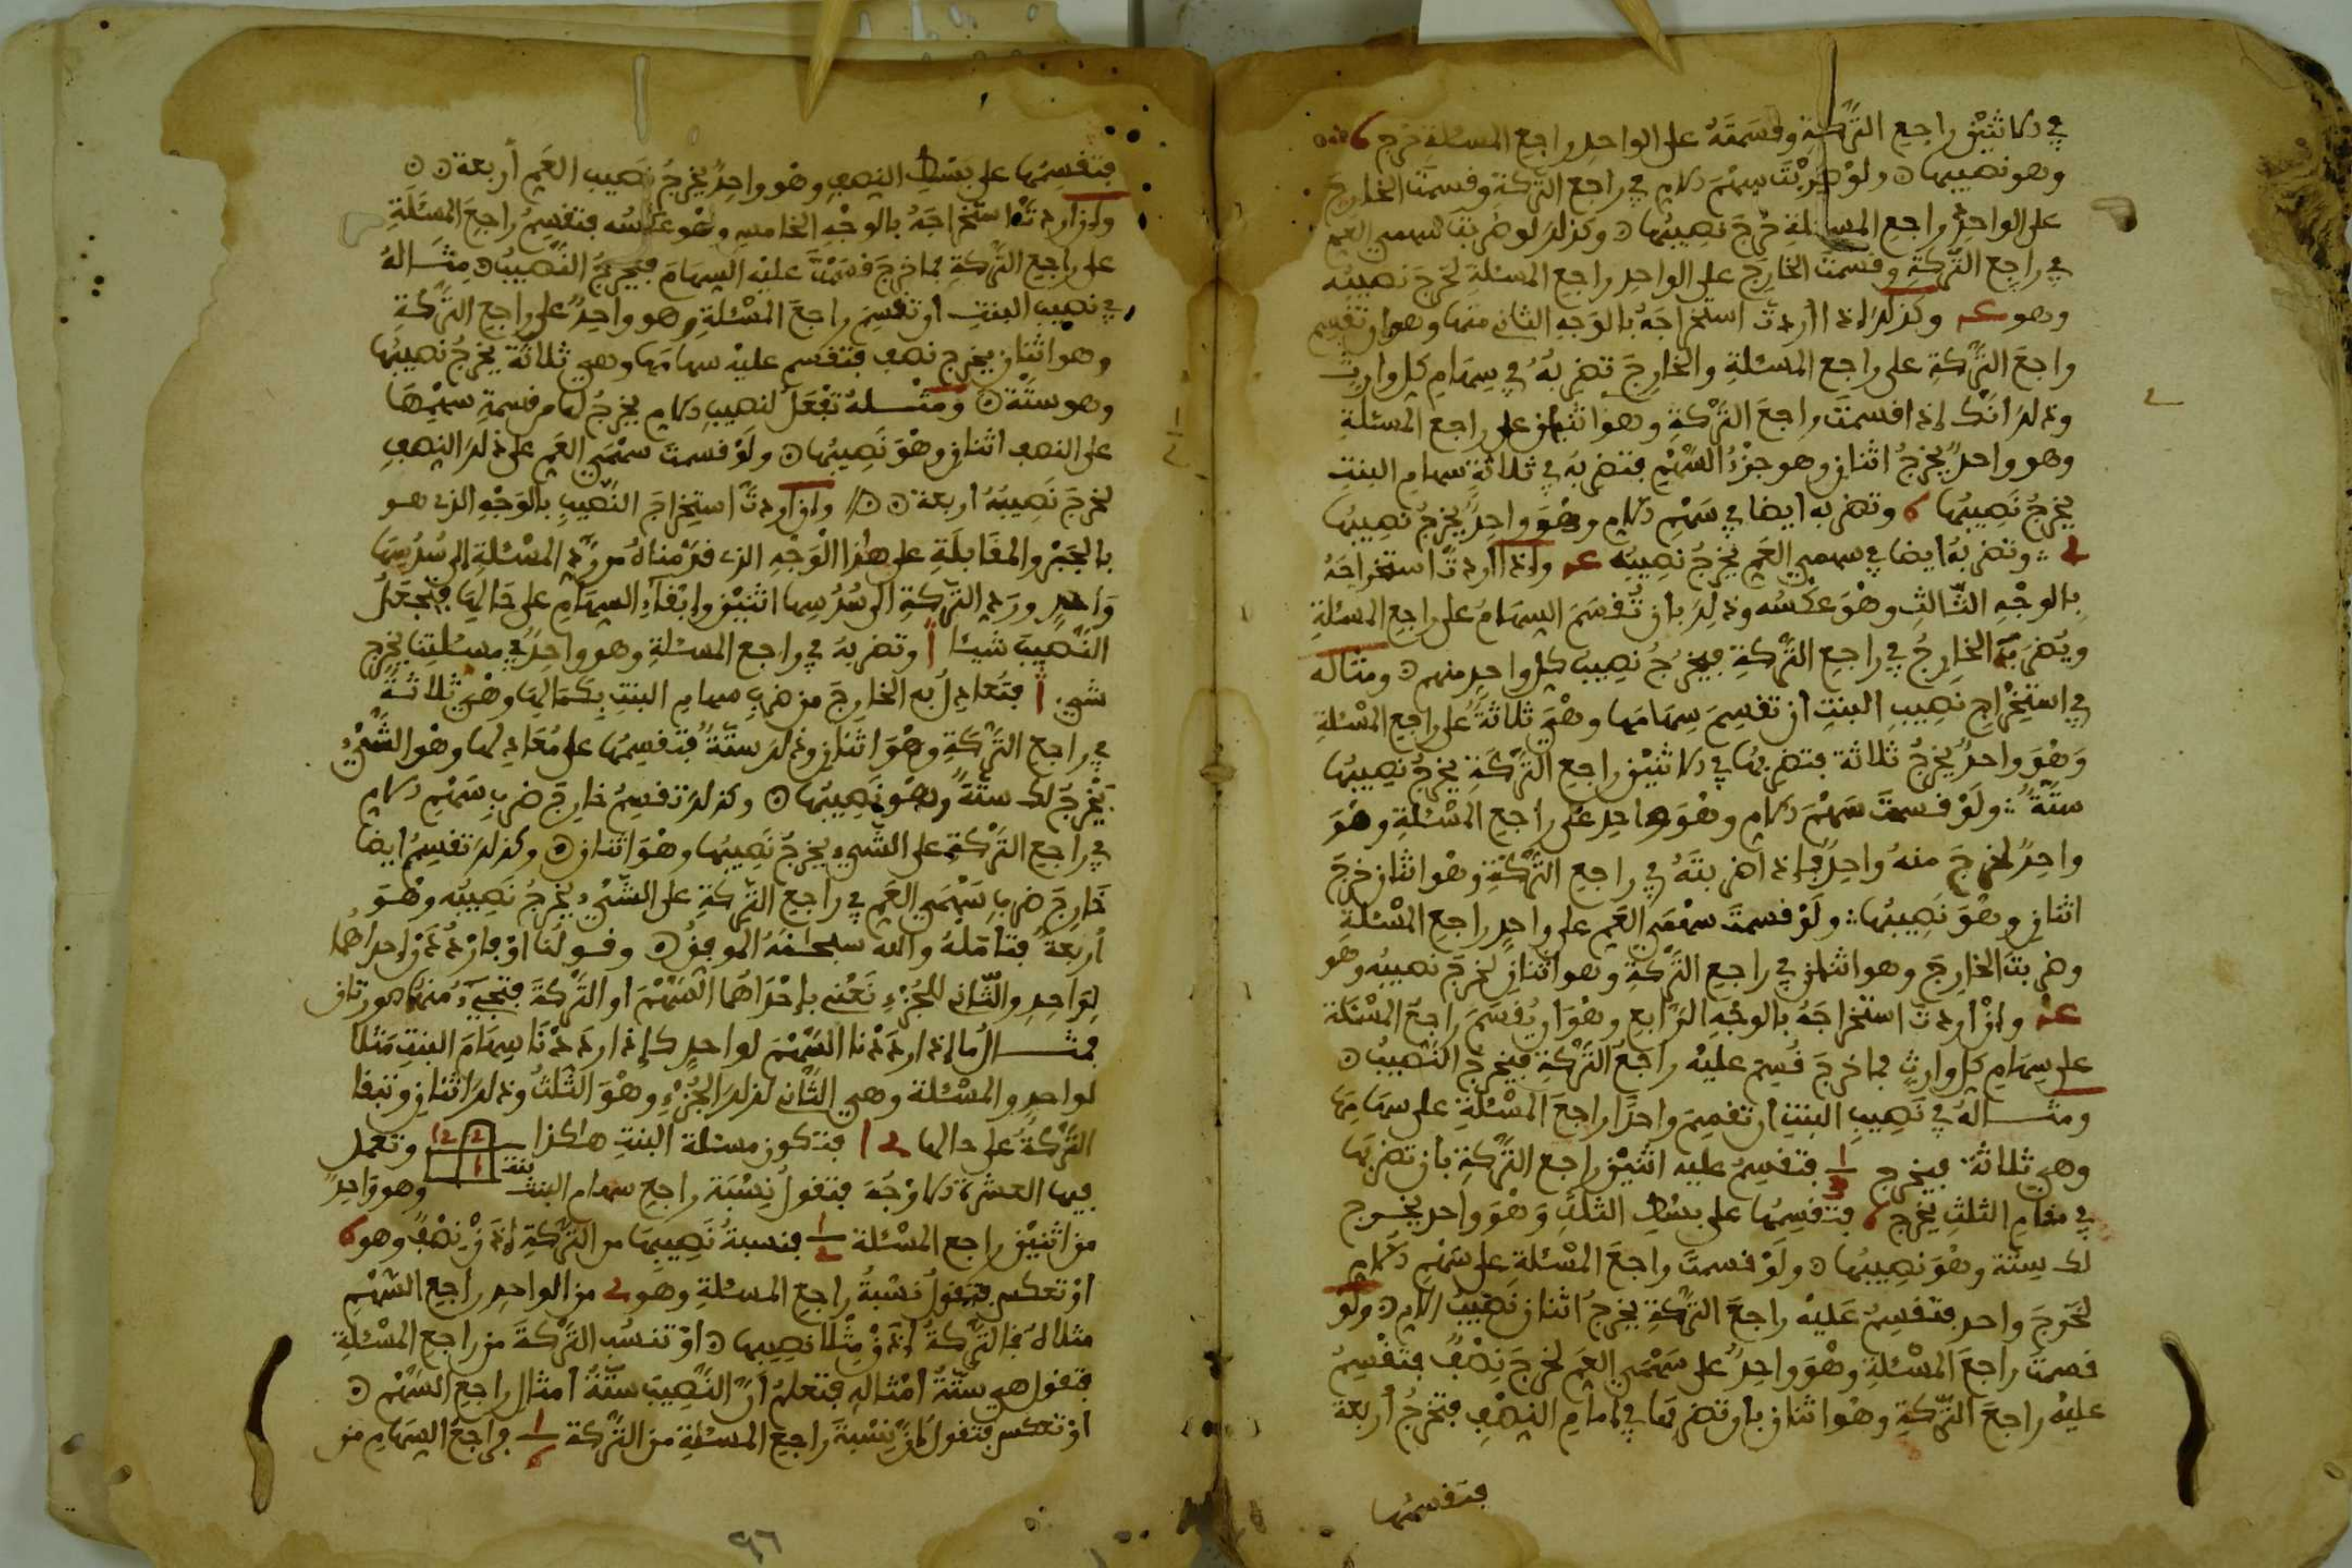 في الاثنين راجع التركة وقسمته على الواحد راجع المسئلة خرج 6
وهو نصيبها ولو ضربت سهم الام في راجع التركة وقسمت الخارج
على الواحد راجع المسئلة خرج نصيبها وكذلك لو ضربت سهمي العم
في راجع التركة وقسمت الخارج على الواحد راجع المسئلة لخرج نصيبه
وهو وكذلك اذا اردت استخراجه بالوجه الثاني منها وهو ان تقسم
راجع التركة على راجع المسئلة والخارج تضربه في سهام كل وارث
وذلك انك اذا قسمت راجع التركة وهو اثنان على راجع المسئلة
وهو واحد يخرج اثنان وهو جزء السهم فتضربه في ثلاثة سهام البنت
يخرج نصيبها 6 وتضربه ايضا في سهم الام وهو واحد يخرج نصيبها
وتضربه ايضا في سهمي العم يخرج نصيبه واذا اردت استخراجه
بالوجه الثالث وهو عكسه وذلك بان تقسم السهام على راجع المسئلة
ويضرب الخارج في راجع التركة فيخرج نصيب كل واحد منهم ومثاله
في استخراج نصيب البنت ان تقسم سهامها وهي ثلاثة على راجع المسئلة
وهو واحد يخرج ثلاثة فتضربها في الاثنين راجع التركة يخرج نصيبها
ستة ولو قسمت سهم الام وهو واحد على راجع المسئلة وهو
واحد لخرج منه واحد فاذا ضربته في راجع التركة وهو اثنان خرج
اثنان وهو نصيبها ولو قسمت سهمي العم على واحد راجع المسئلة
وضربت الخارج وهو اثنان في راجع التركة وهو اثنان لخرج نصيبه وهو
وان اردت استخراجه بالوجه الرابع وهو ان يقسم راجع المسئلة
على سهام كل وارث فما خرج قسم عليه راجع التركة فيخرج النصيب
ومثاله في نصيب البنت ان تقسم واحدا راجع المسئلة على سهامها
وهي ثلاثة فيخرج 1/3 فتقسم عليه اثنين راجع التركة بان تضربها
في مقام الثلث يخرج 6 فتقسمها على بسط الثلث وهو واحد يخرج
لك ستة وهو نصيبها ولو قسمت راجع المسئلة على سهم الام
لخرج واحد فتقسم عليه راجع التركة يخرج اثنان نصيب الام ولو
قسمت راجع المسئلة وهو واحد على سهمي العم لخرج نصف فتقسم
عليه راجع التركة وهو اثنان بان تضربها في امام النصف فتخرج أربعة
فتقسمها
فتقسمها على بسط النصف وهو واحد يخرج نصيب العم أربعة
وان اردت استخراجه بالوجه الخامس وهو عكسه فتقسم راجع المسئلة
على راجع التركة فما خرج قسمت عليه السهام فيخرج النصيب مثاله
في نصيب البنت ان تقسم راجع المسئلة وهو واحد على راجع التركة
وهو اثنان يخرج نصف فتقسم عليه سهامها وهي ثلاثة يخرج نصيبها
وهو ستة ومثله تفعل لنصيب الام يخرج لها من قسمة سهمها
على النصف اثنان وهو نصيبها ولو قسمت سهمي العم على ذلك النصف
لخرج نصيبه اربعة وان اردت استخراج النصيب بالوجه الذي هو
بالجبر والمقابلة على هذا الوجه الذي قدمناه من رد المسئلة الى سدسها
واحد ورد التركة الى سدسها اثنين وابقاء السهام على حالها فتجعل
النصيب شيئا وتضربه في راجع المسئلة وهو واحد في مسئلتنا يخرج
شيء فتعادل به الخارج من ضرب سهام البنت بكمالها وهي ثلاثة
في راجع التركة وهو اثنان وذلك ستة فتقسمها على معادلها وهو الشيء
يخرج لك ستة وهو نصيبها وكذلك تقسم خارج ضرب سهم الام
في راجع التركة على الشيء يخرج نصيبها وهو اثنان وكذلك تقسم ايضا
خارج ضرب سهمي العم في راجع التركة على الشيء يخرج نصيبه وهو
أربعة فتأمله والله سبحانه الموفق وقولنا او فاردد احداهما
لواحد والثاني للجزء نعني باحداهما السهم او التركة فتجيء منها صورتان
فمثال ما اذا رددنا السهم لواحد كاذا رددنا سهام البنت مثلا
لواحد والمسئلة وهي الثاني لذلك الجزء وهو الثلث وذلك اثنان وتبقا
التركة على حالها فتكون مسئلة البنت هكذا بنت 1 2 12 وتعمل
فيها العشرة الاوجه فتقول نسبة راجع سهام البنت وهو واحد
من اثنين راجع المسئلة 1/2 فنسبة نصيبها من التركة اذن نصف وهو 6
او تعكس فتقول نسبة راجع المسئلة وهو من الواحد راجع السهم
مثلاه فالتركة اذن مثلا نصيبها او تنسب التركة من راجع المسئلة
فتقول هي ستة أمثاله فتعلم أن النصيب ستة أمثال راجع السهم
او تعكس فتقول ان نسبة راجع المسئلة من التركة 1/6 فراجع السهام من